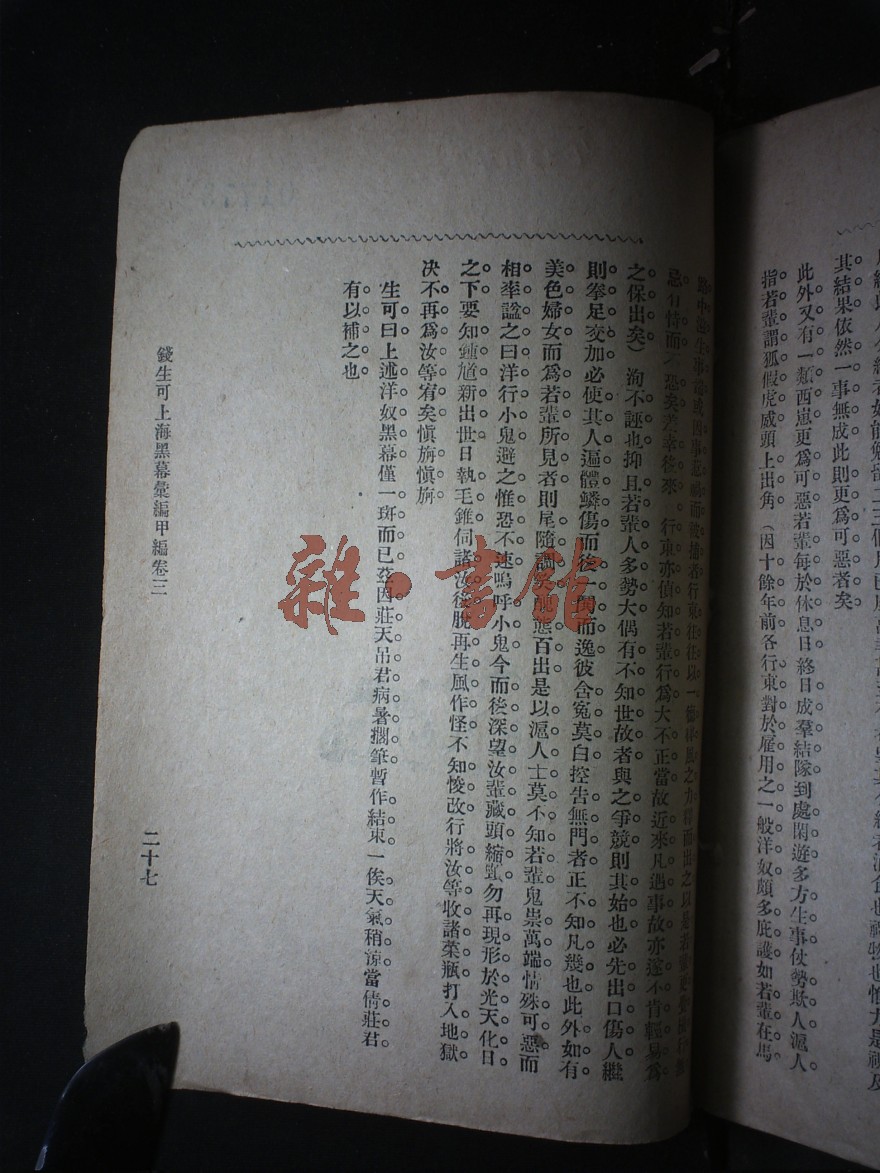 其結果依然一事無成此則更爲可惡者矣
此外又有一類西崽更爲可惡若輩每於休息日終日成羣結隊到處閑遊多方生事仗勢欺人滬人
指若輩謂狐假虎威頭上出角（因十餘年前各行東對於雇用之一般洋奴頗多庇護如若輩在馬
路中滋生事端或因事惹禍而被捕者行東往往以一
忌有恃而不恐矣幸後來行東亦偵知若輩行爲大不正當故近來凡遇事故亦遂不肯輕易爲
之保出矣）洵不誣也抑且若輩人多勢大偶有不知世故者與之爭競則其始也必先出口傷人繼
則拳足交加必使其人遍體鱗傷而後一鬨而逸彼含冤莫白控告無門者正不知凡幾也此外如有
美色婦女而爲若輩所見者則尾隨調笑醜態百出是以滬人士莫不知若輩鬼祟萬端情殊可惡而
相率諡之曰洋行小鬼避之惟恐不速嗚呼小鬼今而後深望汝輩藏頭縮頸勿再現形於光天化日
之下要知鍾馗新出世日執毛錐伺諸汝後脫再生風作怪不知悛改行將汝等收諸菜瓶打入地獄
決不再爲汝等宥矣愼旃愼旃
生可曰上述洋奴黑幕僅一斑而已茲因莊天吊君病暑擱筆暫作結束一俟天氣稍涼當倩莊君
有以補之也
錢生可上海黑幕彙編甲編卷三
二十七
雜·書館